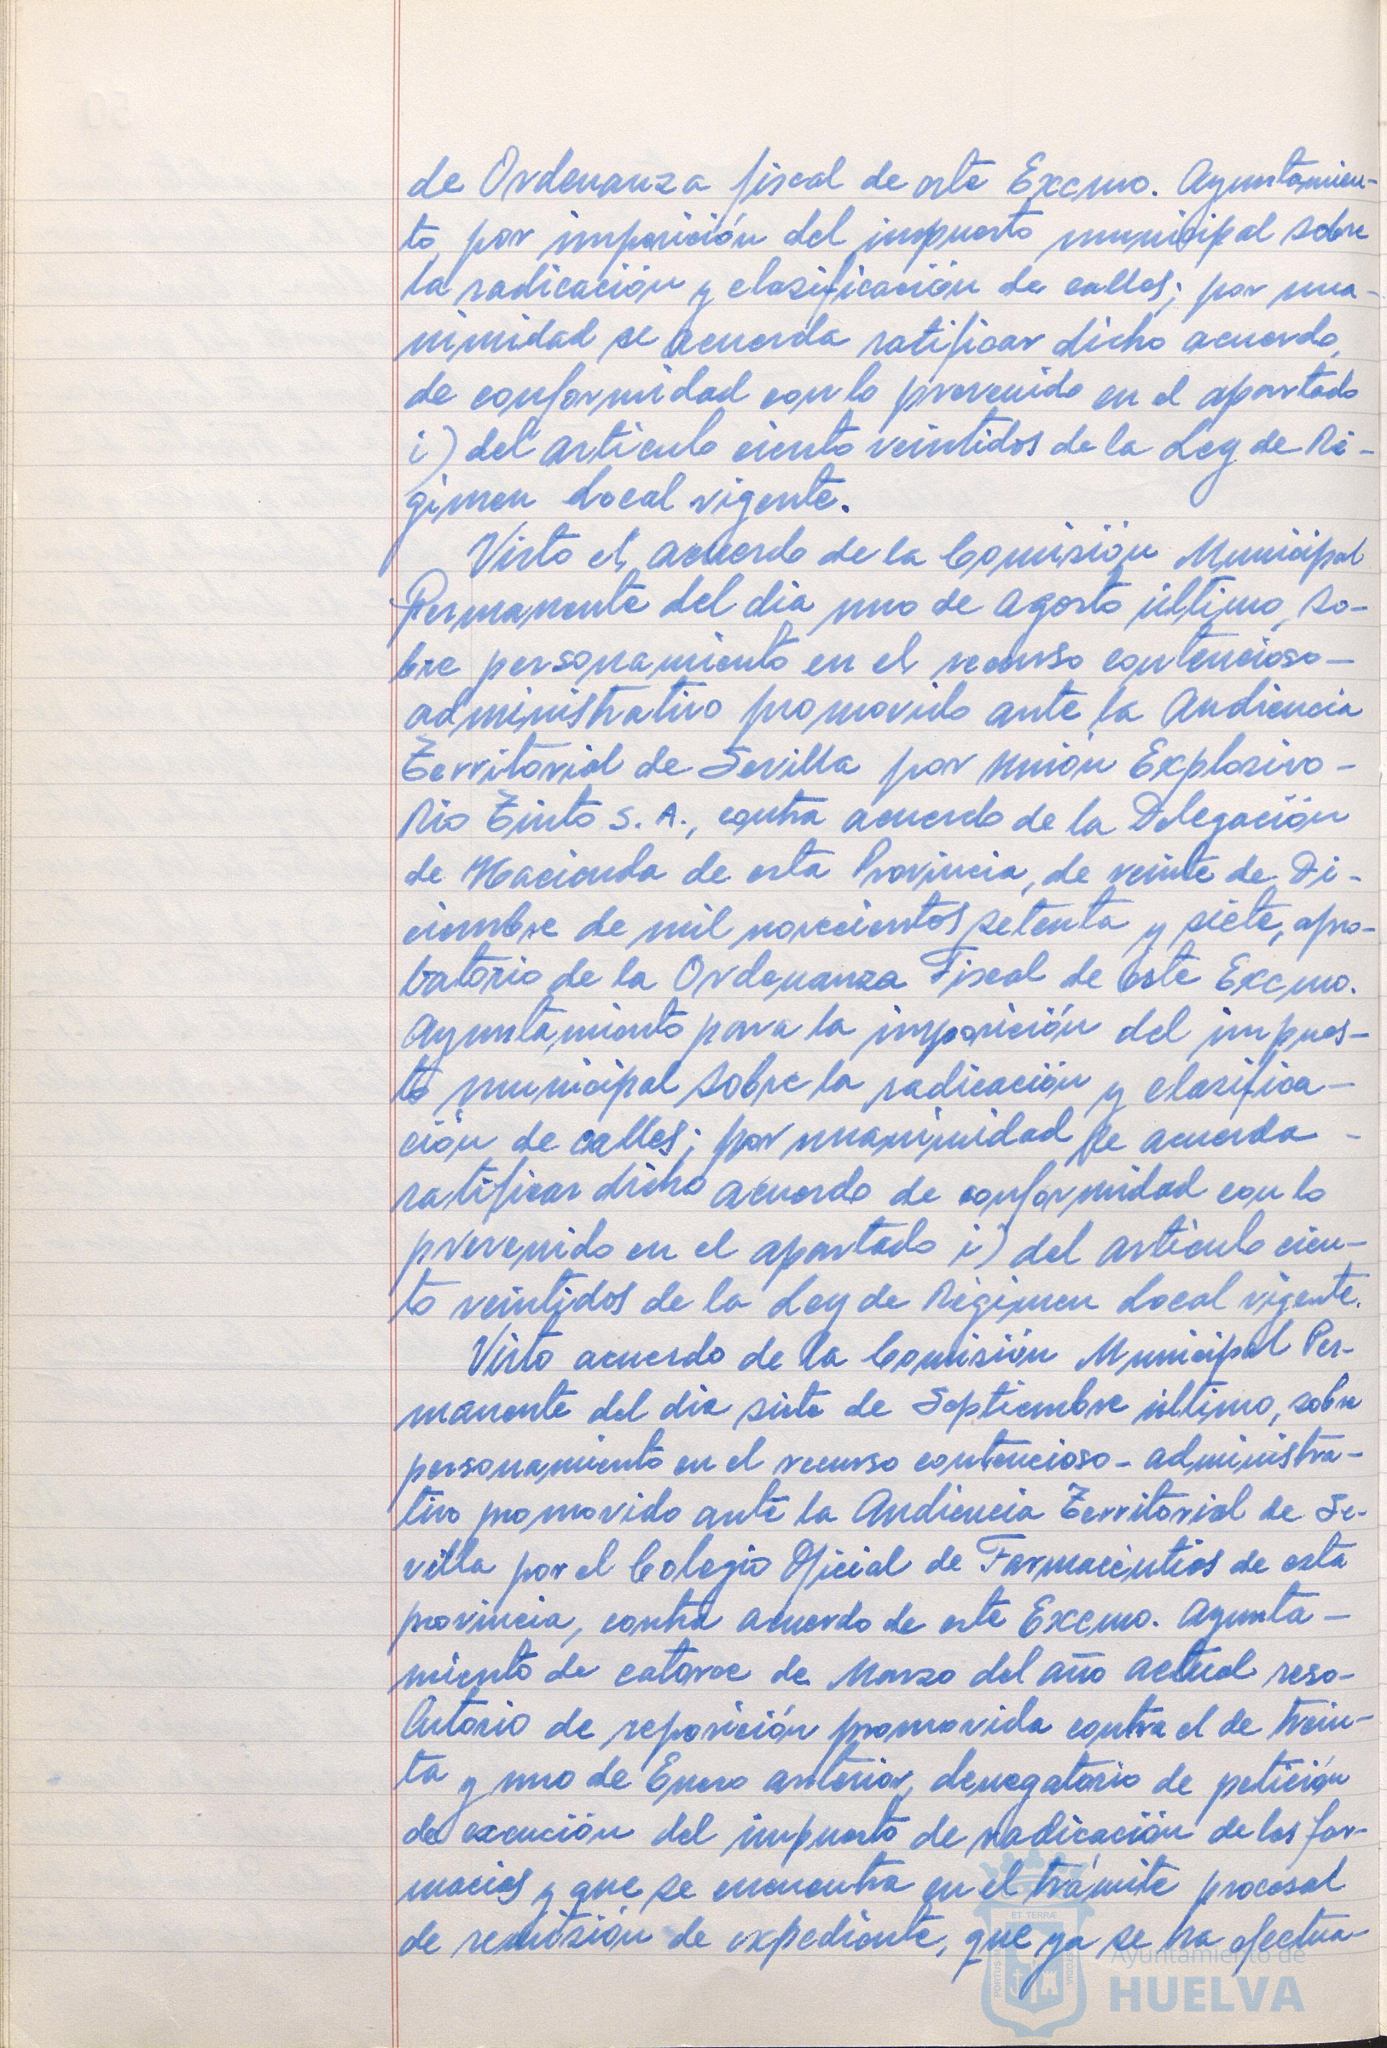 de Ordenanza fiscal de este Excmo. Ayuntamien-
to, por imposición del impuesto municipal sobre
la radicación y clasificación de calles; por una-
nimidad se acuerda ratificar dicho acuerdo,
de conformidad con lo prevenido en el apartado
i) del artículo ciento veintidos de la Ley de Ré-
gimen Local vigente.
Visto el acuerdo de la Comisión Municipal
Permanente del dia uno de Agosto último, so-
bre personamiento en el recurso contencioso-
administrativo promovido ante la Audiencia
Territorial de Sevilla por Unión Explosivo-
Rio Tinto S. A., contra acuerdo de la Delegación
de Hacienda de esta Provincia, de veinte de Di-
ciembre de mil novecientos setenta y siete, apro-
batorio de la Ordenanza Fiscal de este Excmo.
Ayuntamiento para la imposición del impues-
to municipal sobre la radicación y clasifica-
ción de calles; por unanimidad se acuerda -
ratificar dicho acuerdo de conformidad con lo
prevenido en el apartado i) del artículo cien-
to veintidos de la Ley de Régimen Local vigente.
Visto acuerdo de la Comisión Municipal Per-
manente del dia siete de Septiembre último, sobre
personamiento en el recurso contencioso-administra-
tivo promovido ante la Audiencia Territorial de Se-
villa por el Colegio Oficial de Farmacéutios de esta
provincia, contra acuerdo de este Excmo. Ayunta-
miento de catorce de Marzo del año actual reso-
lutorio de reposición promovida contra el de trein-
ta y uno de Enero anterior, denegatorio de petición
de exención del impuesto de radicación de las far-
macias y que se encuentra en el trámite procesal
de remisión de expediente, que ya se ha efectua-
ET TERRÆ
PORTUS
CUSTODIA
Ayuntamiento de
HUELVA